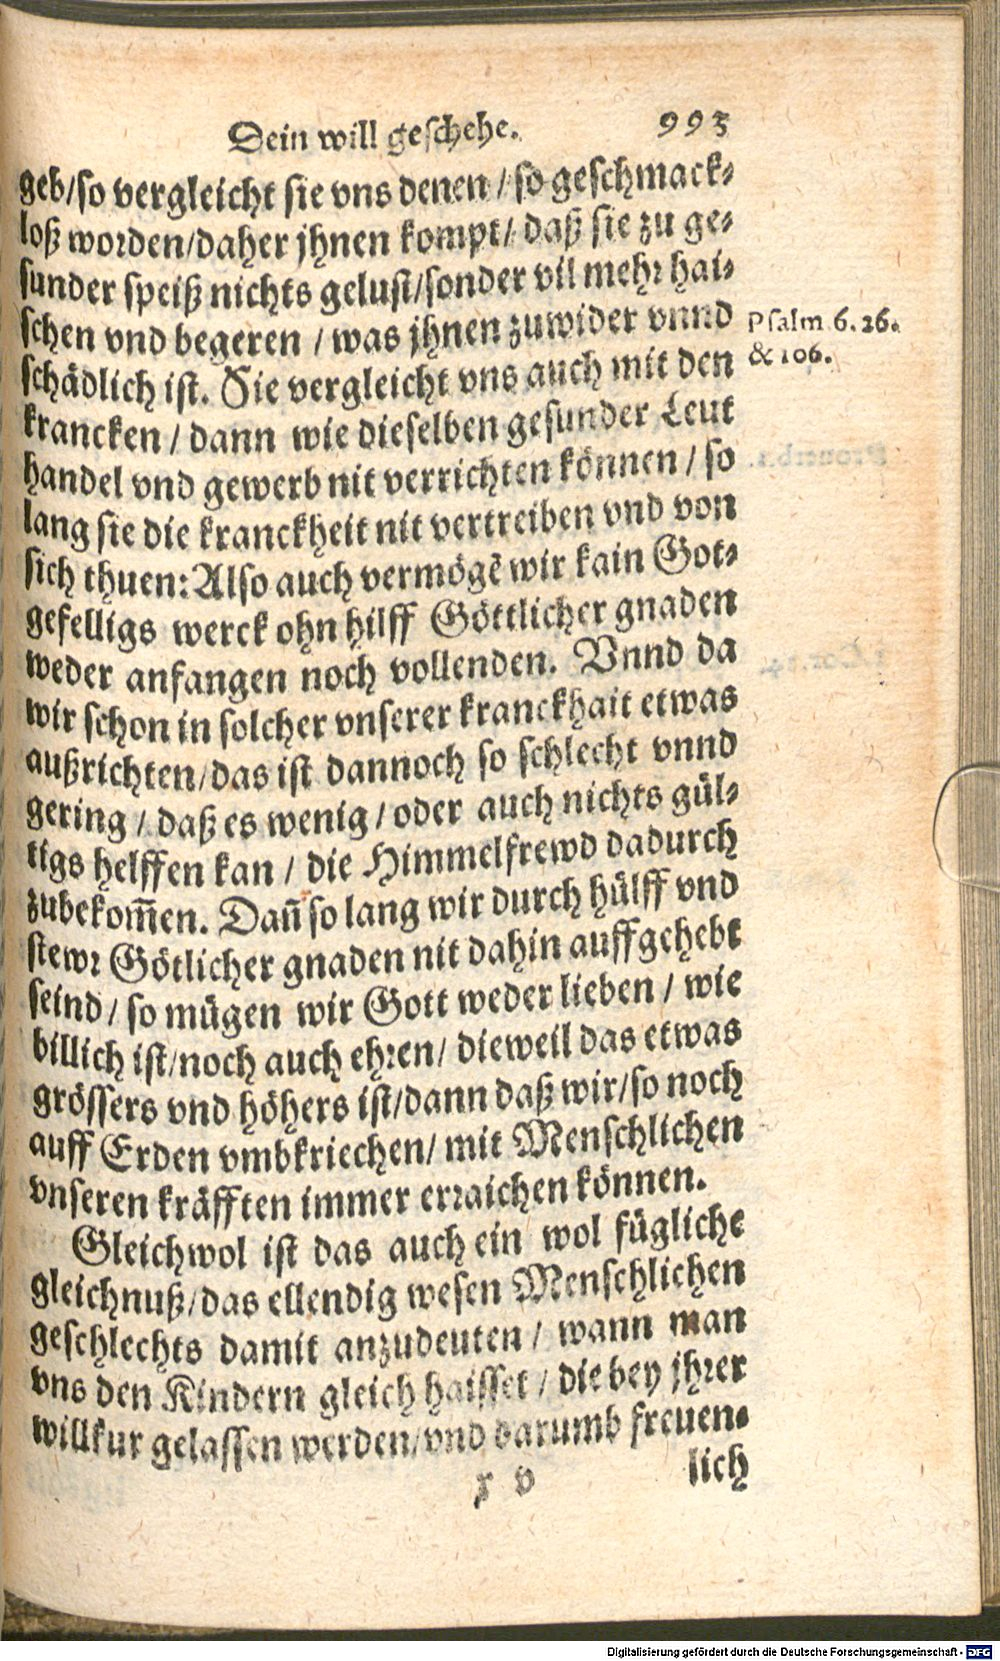 Dein will geschehe. 993
geb/so vergleicht sie vns denen / so geschmack⸗
loß worden/daher jhnen kompt/ daß sie zu ge⸗
sunder speiß nichts gelust/sonder vil mehr hai⸗
schen vnd begeren / was jhnen zuwider vnnd
Psalm 6. 26.
schädlich ist. Sie vergleicht vns auch mit den
& 106.
krancken / dann wie dieselben gesunder Leut
handel vnd gewerb nit verrichten können / so
lang sie die kranckheit nit vertreiben vnd von
sich thuen: Also auch vermögē wir kain Got⸗
gefelligs werck ohn hilff Göttlicher gnaden
weder anfangen noch vollenden. Vnnd da
wir schon in solcher vnserer kranckhait etwas
außrichten/das ist dannoch so schlecht vnnd
gering / daß es wenig / oder auch nichts gül⸗
tigs helffen kan / die Himmelfrewd dadurch
zubekom̄en. Dañ so lang wir durch hülff vnd
stewr Götlicher gnaden nit dahin auffgehebt
seind / so mügen wir Gott weder lieben / wie
billich ist/noch auch ehren/ dieweil das etwas
grössers vnd höhers ist/dann daß wir/so noch
auff Erden vmbkriechen/ mit Menschlichen
vnseren kräfften immer erraichen können.
Gleichwol ist das auch ein wol fügliche
gleichnuß/das ellendig wesen Menschlichen
geschlechts damit anzudeuten / wann man
vns den Kindern gleich haisset / die bey jhrer
willkur gelassen werden/vnd darumb freuen⸗
x v lich
Digitalisierung gefördert durch die Deutsche Forschungsgemeinschaft - DFG